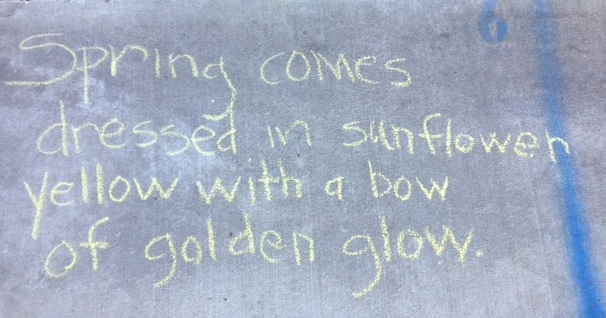 6
Spring comes
dressed in sunflower
yellow with a bow
of golden glow.